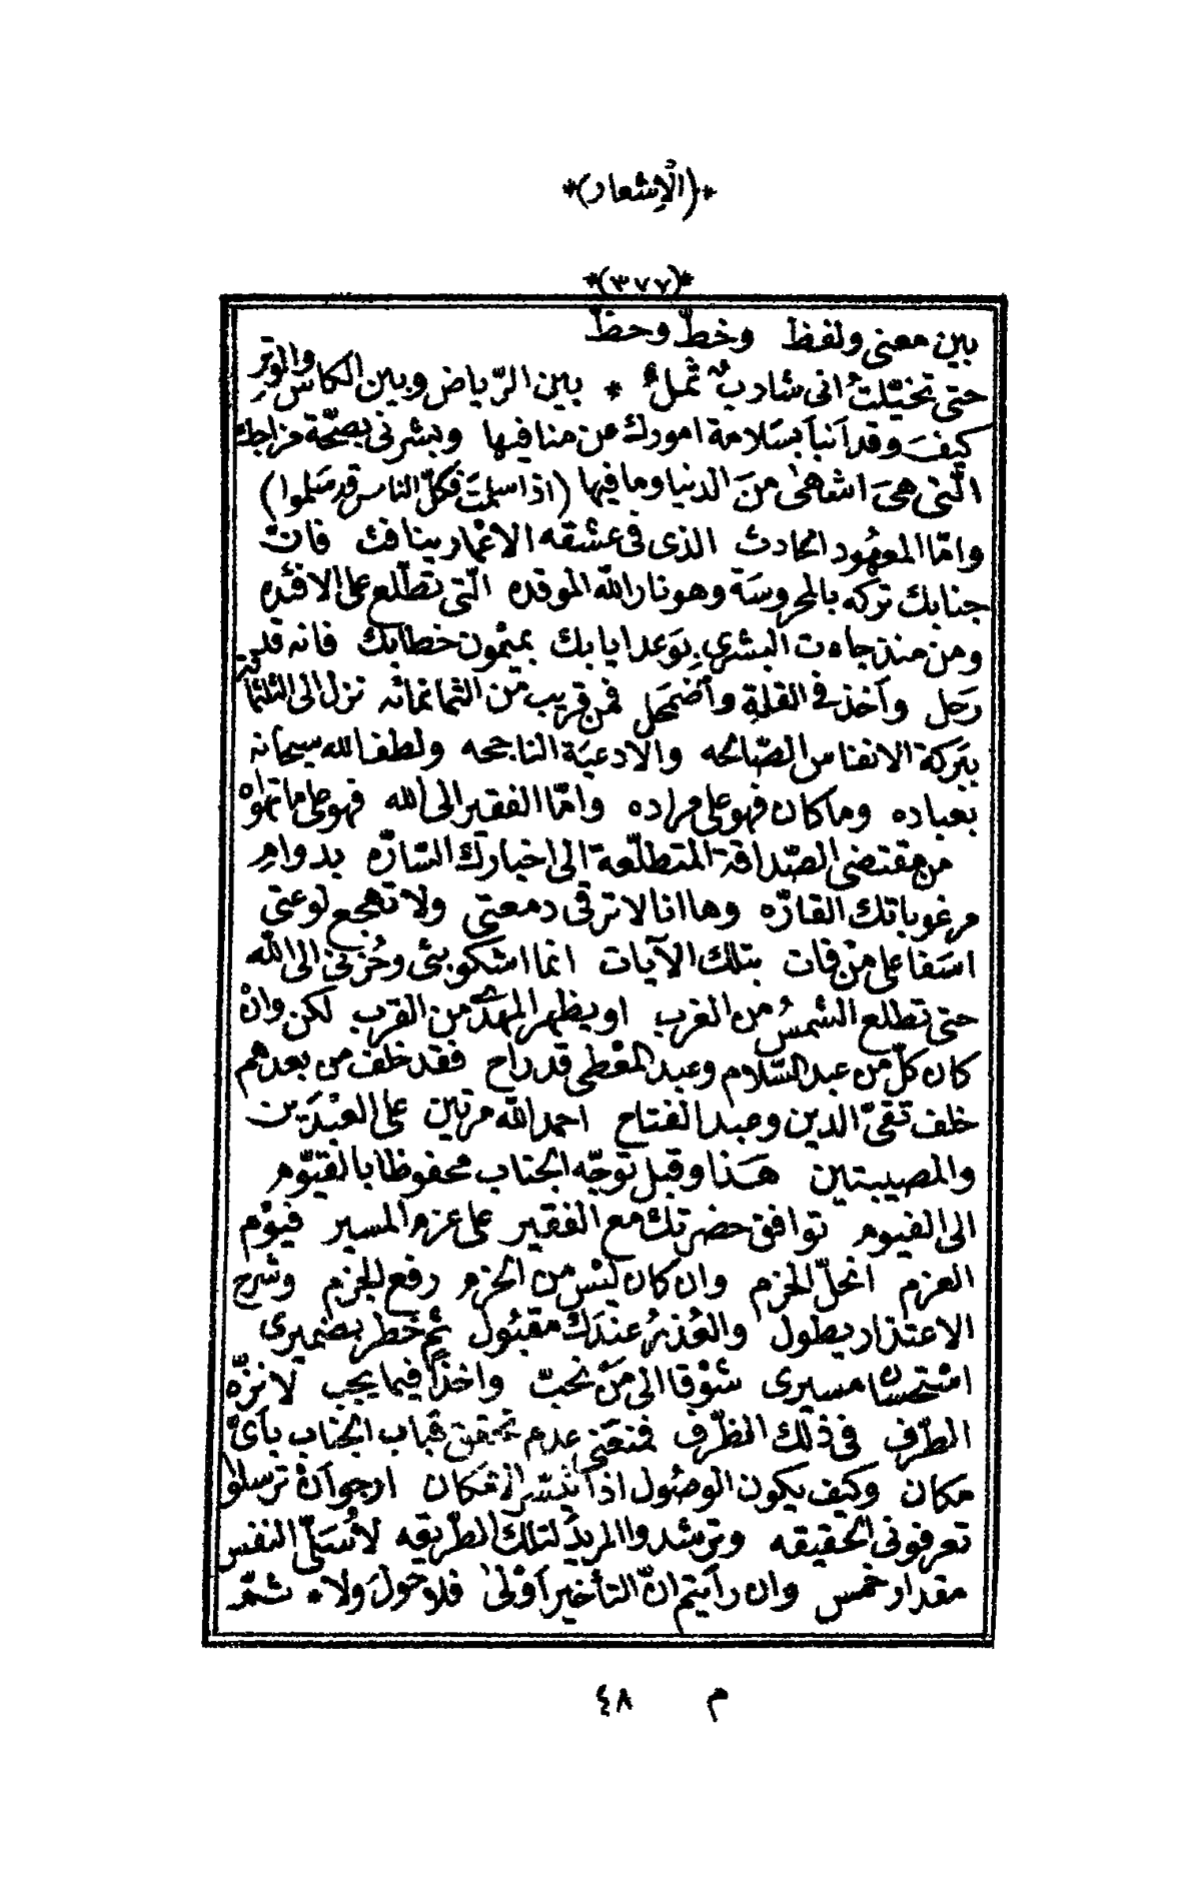 *(الإشعار)*
*(٣٧٧)*
بين معنى ولفظ وخطّ وحظّ
حتى تخيّلتُ انى شاربٌ ثملٌ * بين الرّياض وبين الكاس والوترِ
كيفَ وقد اَنباَ بسَلامة امورك عن منافيها وبشرنى بصحّة مزاجك
الّتى هىَ اشهىٰ منَ الدنيا وما فيها (اذا سلمتَ فكلّ الناس قد سَلموا)
وامّا المعهُود الحادث الذى فى عشقه الاعْمار ينافث فانّ
جنابك تركه بالمحروسَة وهو نار الله الموقده الّتى تطّلع على الافئده
ومن منذ جاءت البشرى بِوَعد ايابك بميْمون خطابك فانه قد
رَحل وأخذ فى القلةِ وأضمحل فمن قريب من الثمانمائه نزل الى الثلثمائة
ببَركة الانفاس الصّالحه والادعيَة الناجحه ولطف الله سبحانه
بعباده وما كان فهو على مراده وامّا الفقير الى الله فهو على ما تهواهْ
من مقتضى الصّداقة المتطلّعة الى اخبارك السّارّه بدوامِ
مرغوباتك القارّه وها انا لا ترقى دمعتى ولا تهجع لوعتى
اسَفا على من فات بتلك الآيات انما اشكو بثى وحُزنى الى الله
حتى تطلع الشمسُ من الغرب او يظهر المهدىّ من القرب لكن وانْ
كان كلّ من عبد السّلام وعبد المعْطى قد راح فقد خلف من بعدهم
خلف تقىّ الدين وعبد الفتاح احمد الله مرتين على العبْدَين
والمصيبتين هَذا وقبل توجّه الجناب محفوظا بالقيّوم
الى الفيوم توافق حضرتك مع الفقير على عزم المسير فيوْم
العزم انحلّ الحزم وان كان ليْس من الحزم رفع للجزم وشرح
الاعتذار يطول والعُذرُ عندَك مقبُول ثم خطر بضميرى
اسْتحسان مسيرى شوْقا الى مَنْ نحبّ واخذاً فيما يجب لانزّه
الطّرف فى ذلك الظّرف فمنعَنى عدم تحقق قباب الجناب باَىّ
مكان وكيف يكون الوصُول اذا لم يتيسّر الامْكان ارجو اَنْ ترسلوا
تعرفونى الحقيقه وترشدوا المريدَ لتلك الطّريقه لأسَلّى النفس
مقدار خمس وان رأيتم انّ التأخير اَوْلىٰ فلا حولَ ولا * ثمّ
م ٤٨